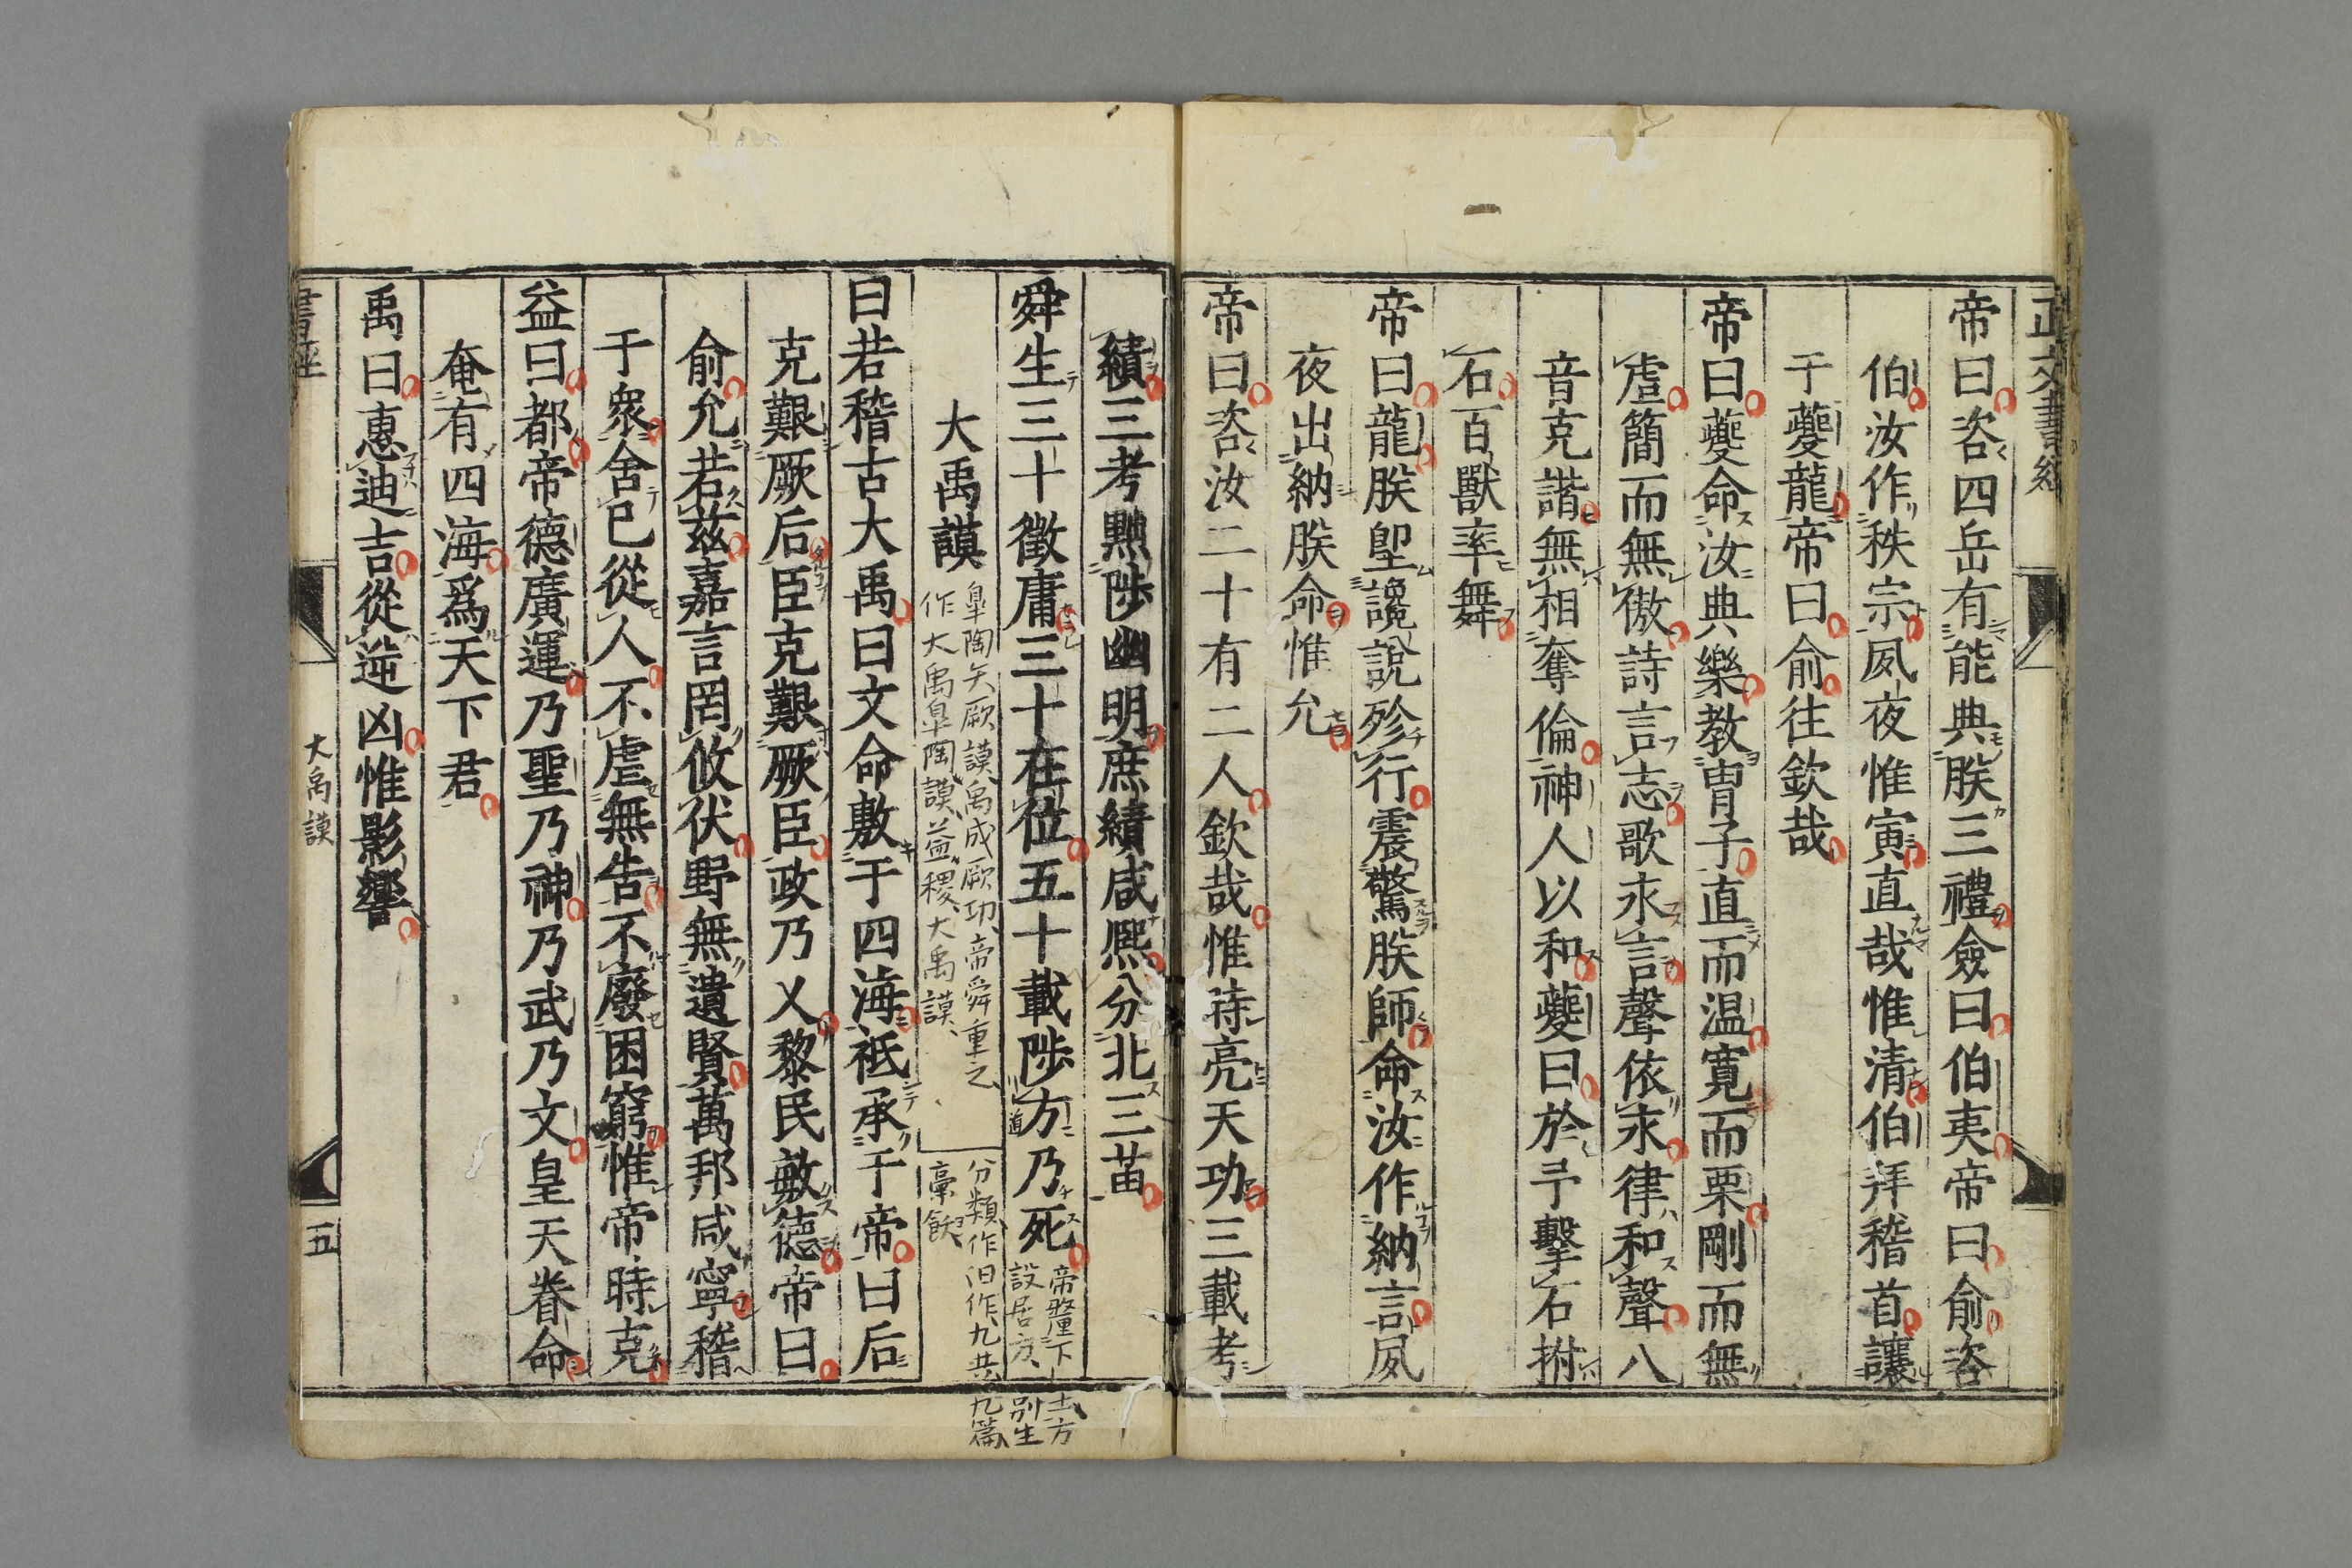 正文書經
帝曰咨四岳有能典朕三禮僉曰伯夷帝曰俞咨
伯汝作秩宗夙夜惟寅直哉惟清伯拜稽首讓
于夔龍帝曰俞往欽哉
帝曰夔命汝典樂教冑子直而温寛而栗剛而無
虐簡而無傲詩言志歌永言聲依永律和聲八
音克諧無相奪倫神人以和夔曰於予擊石拊
石百獸率舞
帝曰龍朕堲讒說殄行震驚朕師命汝作納言夙
夜出納朕命惟允
帝曰咨汝二十有二人欽哉惟時亮天功三載考
績三考黜陟幽明庶績咸熈分北三苗
舜生三十徵庸三十在位五十載陟方乃死
道
帝釐下土方
設居方別生
分類作汩作九共九篇
槀飫
大禹謨
皐陶矢厥謨禹成厥功帝舜重之
作大禹皐陶謨益稷大禹謨
曰若稽古大禹曰文命敷于四海祗承于帝曰后
克艱厥后臣克艱厥臣政乃乂黎民敏德帝曰
俞允若茲嘉言罔攸伏野無遺賢萬邦咸寧稽
于衆舍已從人不虐無告不廢困窮惟帝時克
益曰都帝德廣運乃聖乃神乃武乃文皇天眷命
奄有四海爲天下君
禹曰惠迪吉從逆凶惟影響
書經
大禹謨
五